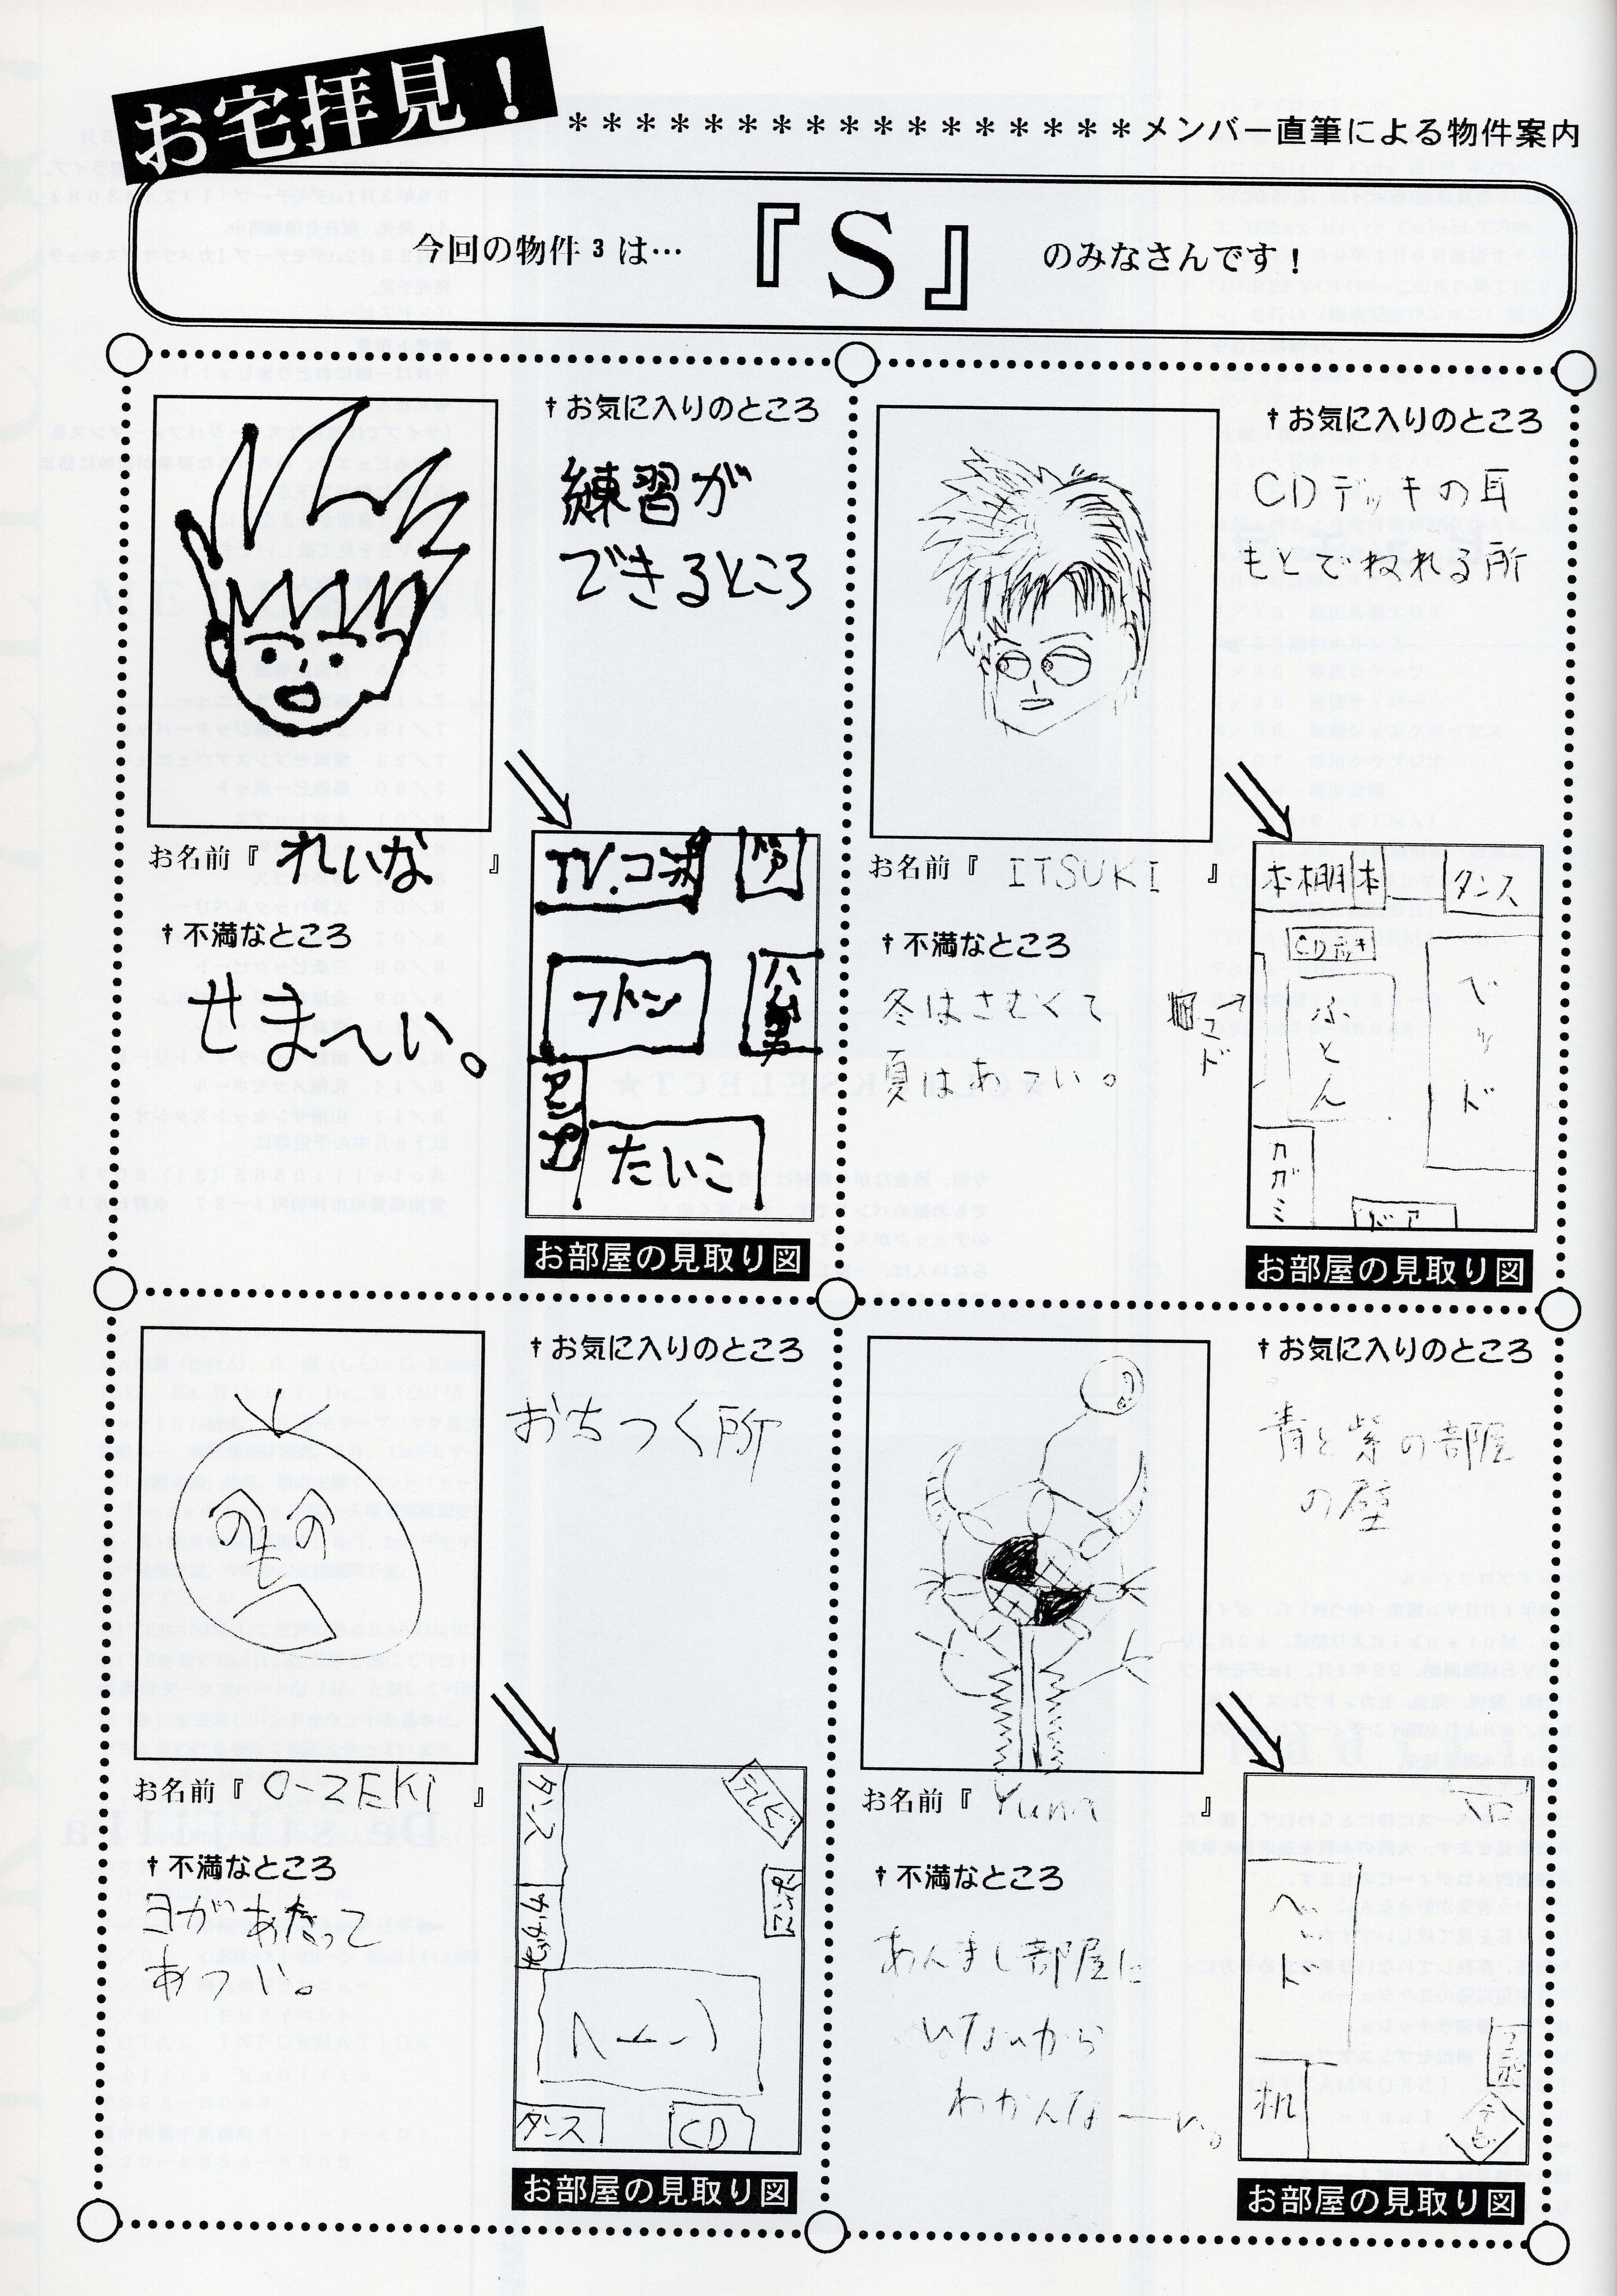 お宅拝見!
******************メンバー直筆による物件案内
今回の物件3は…『S』のみなさんです!
†お気に入りのところ
練習が
できるところ
お名前『れいな』
†不満なところ
せま〜い。
TV.コンポ
ドア
フトン
アンプ
たいこ
お部屋の見取り図
†お気に入りのところ
CDデッキの耳
もとでねれる所
お名前『ITSUKI』
†不満なところ
冬はさむくて
夏はあつい。
本棚
本
タンス
CDデッキ
マド
ふとん
ベッド
カガミ
ドア
お部屋の見取り図
†お気に入りのところ
おちつく所
お名前『O-ZEKI』
†不満なところ
ヨガあたって
あつい。
タンス
テレビ
ベット
タンス
CD
お部屋の見取り図
†お気に入りのところ
青と紫の部屋
の壁
お名前『Yuna』
†不満なところ
あんまし部屋に
いないから
わかんなーい。
入口
ベッド
コンポ
机
お部屋の見取り図